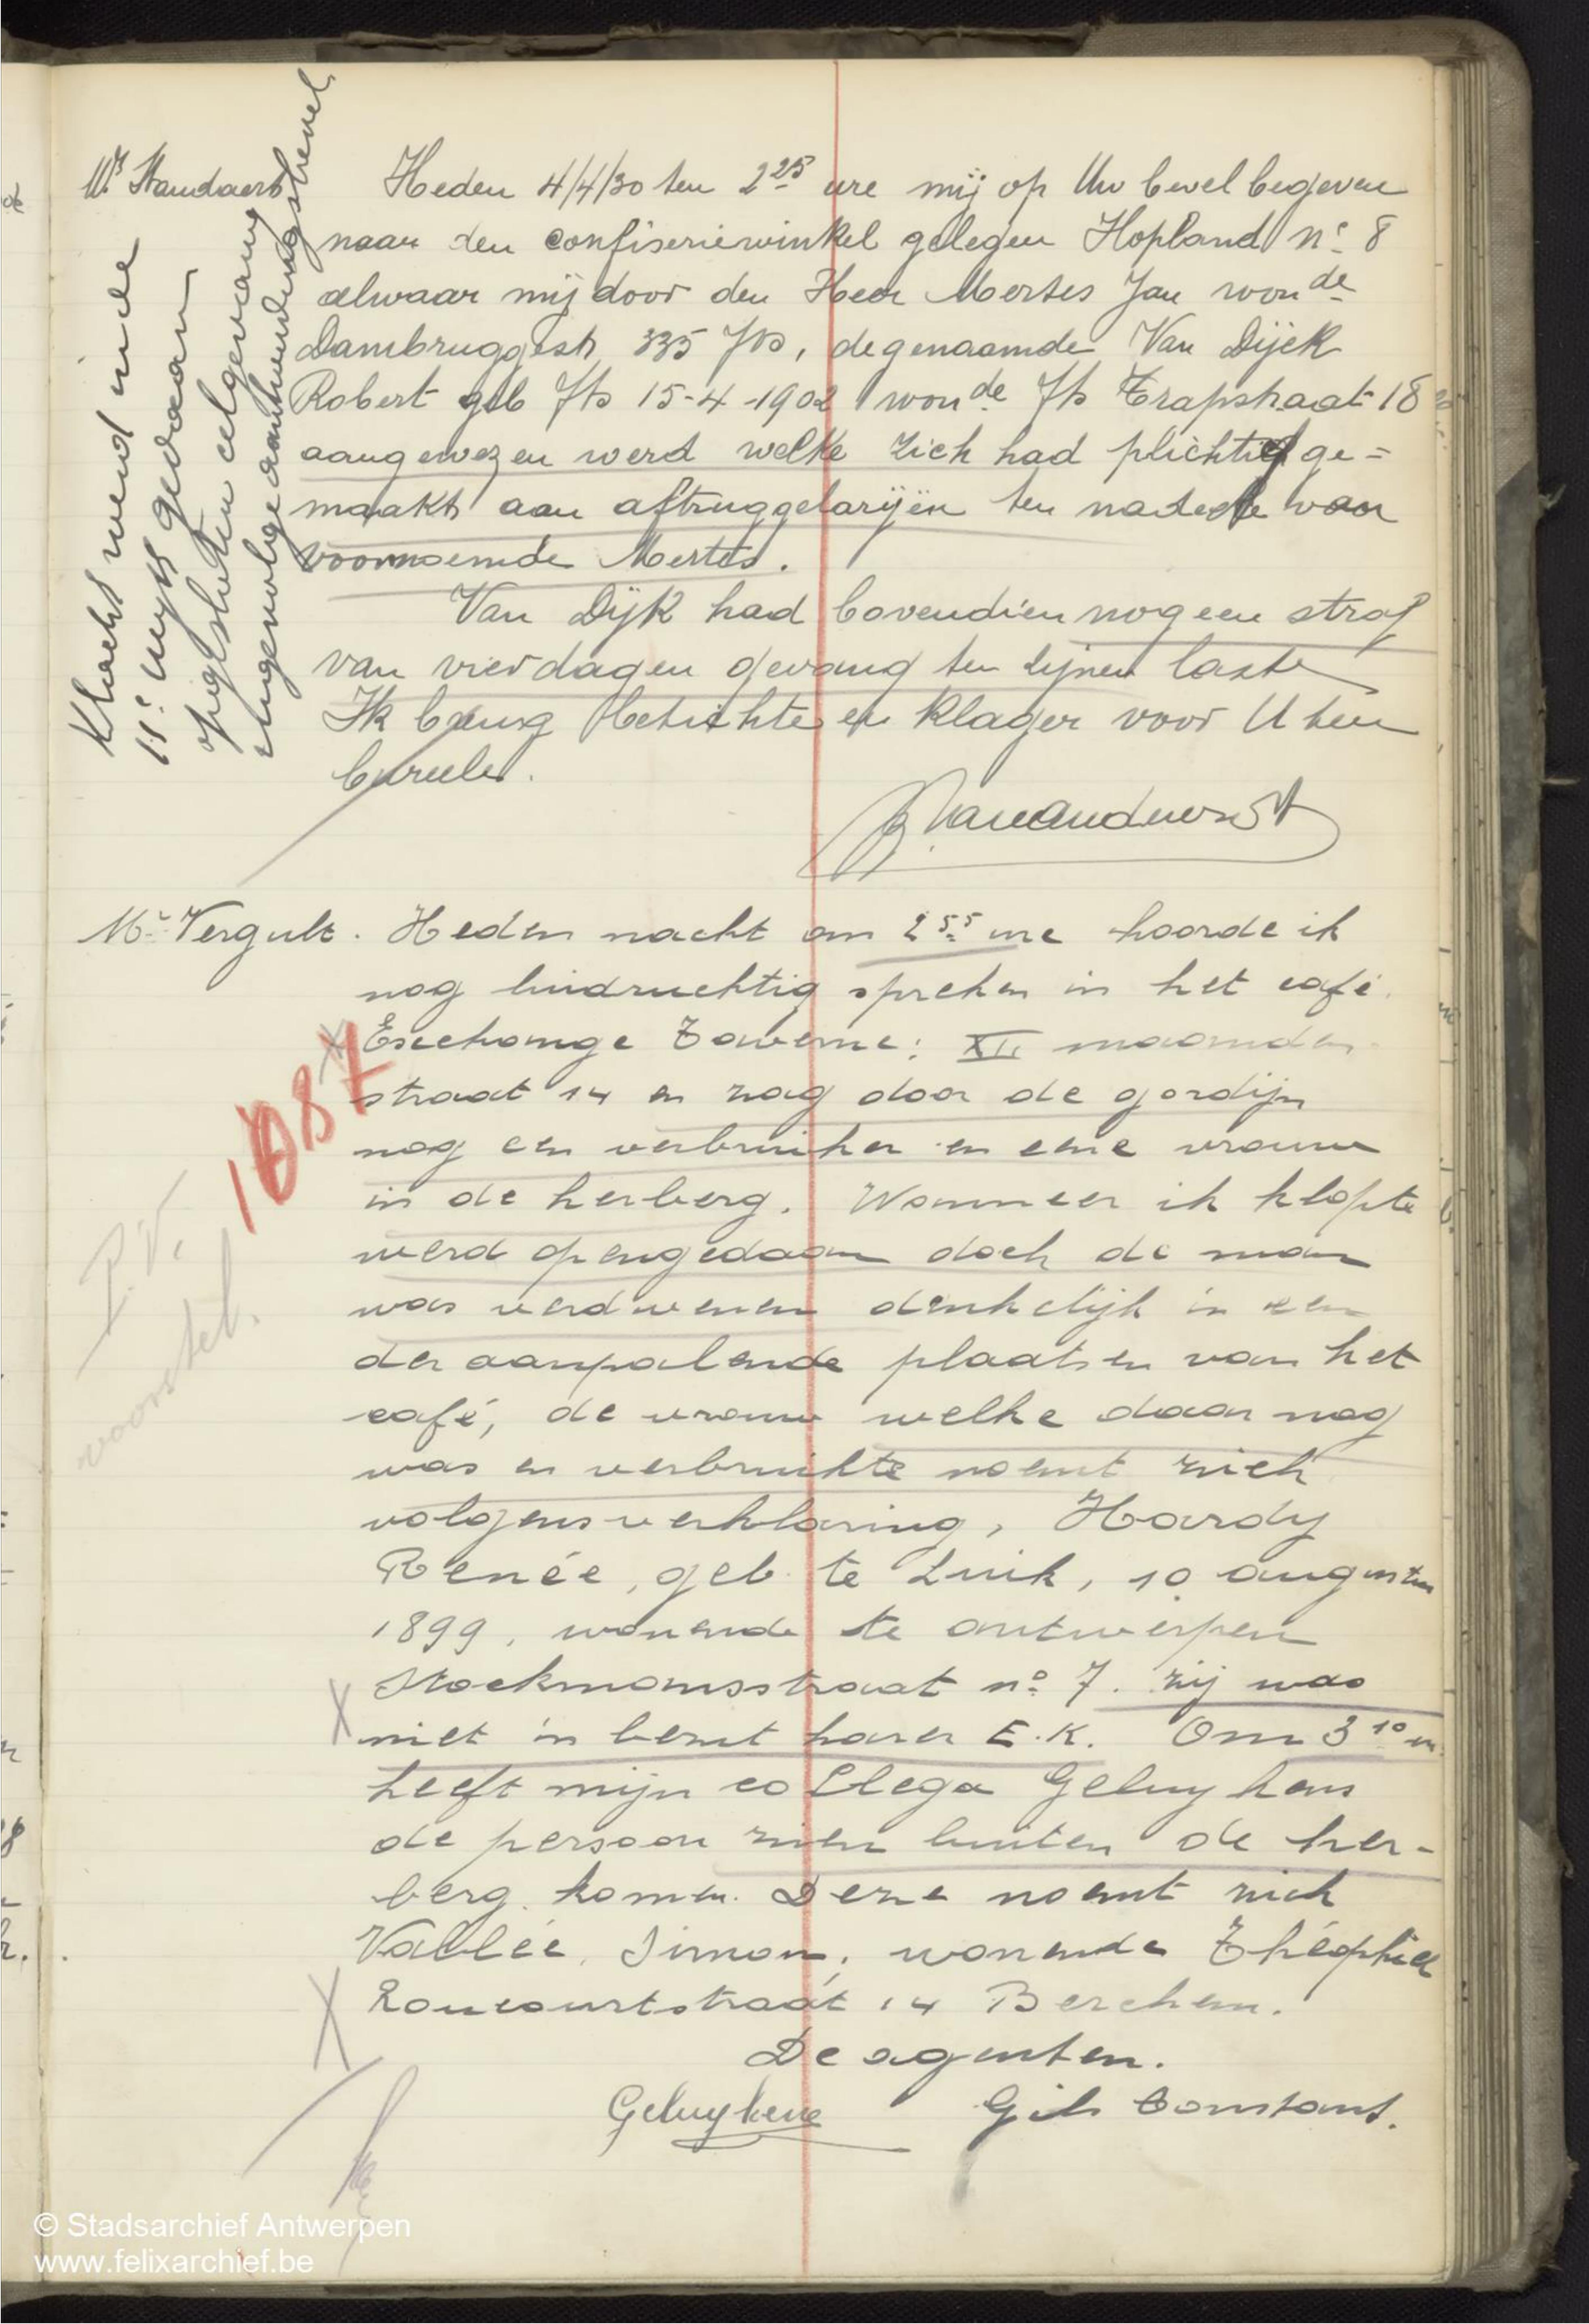 Mr Standaert
Heden 4/4/30 ten 2 25 ure mij op Uw bevel begeven
naar den confiseriewinkel gelegen Hopland n° 8
alwaar mij door den Heer Mertes Jan won de
Dambruggestr 335 Jts, de genaamde Van Dijck
Robert geb Jts 15-4-1902 won de Jts Trapstraat 18
aangewezen werd welke zich had plichtig ge=
maakt aan aftruggelarijën ten nadeele van
voornoemde Mertes.
Van Dijk had bovendien nog een straf
van vier dagen gevang ten zijnen laste
Ik breng betichte en klager voor U ten
bureele.
Klacht werd in de
11e wijk gedaan
opgesloten celgevang
ingevolge aanhoudingsbevel
Mr Vergult. Heden nacht om 2 55 ure hoorde ik
nog luidruchtig spreken in het café
Exechange Taverne: XII maanden
straat 14 en zag door de gordijn
nog een verbruiker en eene vrouw
in de herberg. Wanneer ik klopte
werd opengedaan doch de man
was verdwenen denkelijk in een
der aanpalende plaatsen van het
café, de vrouw welke daar nog
was en verbruikte noemt zich
volgens verklaring, Hardy
Renée, geb. te Luik, 10 augustus
1899, wonende te Antwerpen
Stockmansstraat n° 7. zij was
niet in bezit harer E.K. Om 3 10 u.
heeft mijn collega Geluykens
de persoon zien buiten de her-
berg komen. Deze noemt zich
Vallée, Simon, wonende Théophiel
Roucourtstraat 14 Berchem.
De agenten.
Geluykens Gils Constant.
1087
P.V.
voorstel.
© Stadsarchief Antwerpen
www.felixarchief.be